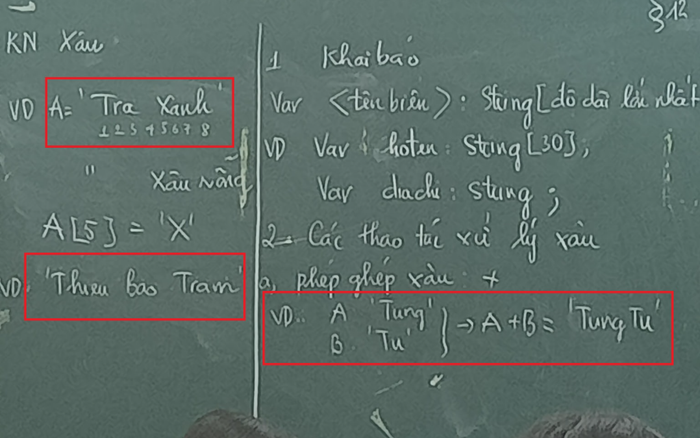 §12
KN Xâu
VD A= 'Tra Xanh'
1 2 3 4 5 6 7 8
" Xâu rỗng
A[5] = 'X'
VD: 'Thieu Bao Tram'
1 Khai báo
Var <tên biến>: String[độ dài lớn nhất
VD Var hoten: String[30];
Var diachi: String;
2. Các thao tác xử lý xâu
a, phép ghép xâu: +
VD: A 'Tung'
B. 'Tu' } → A+B = 'TungTu'